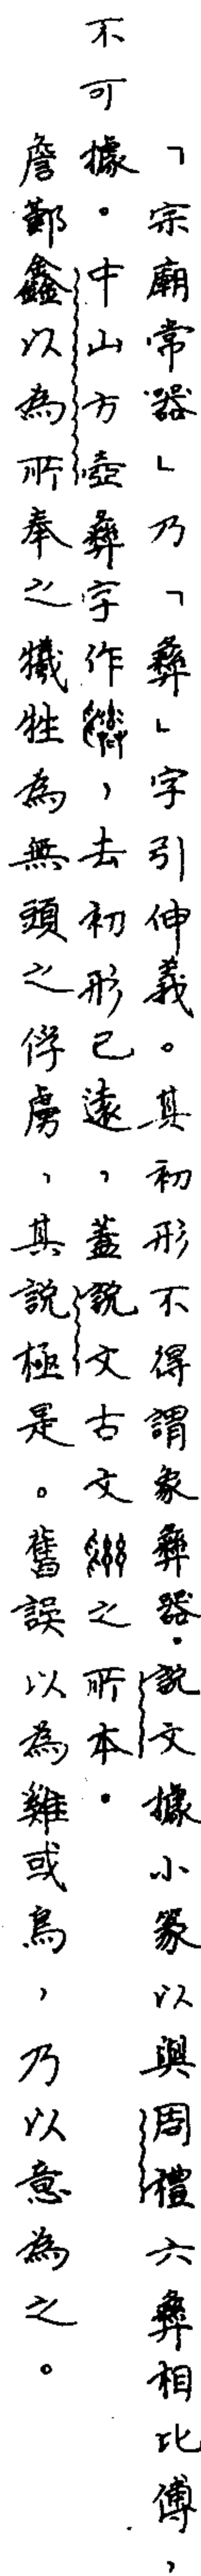 「宗廟常器」乃「彝」字引伸義。其初形不得謂象彝器。說文據小篆以與周禮六彝相比傅，
不可據。中山方壺彝字作，去初形已遠，蓋說文古文之所本。
詹鄞鑫以為所奉之犧牲為無頭之俘虜，其說極是。舊誤以為雞或鳥，乃以意為之。